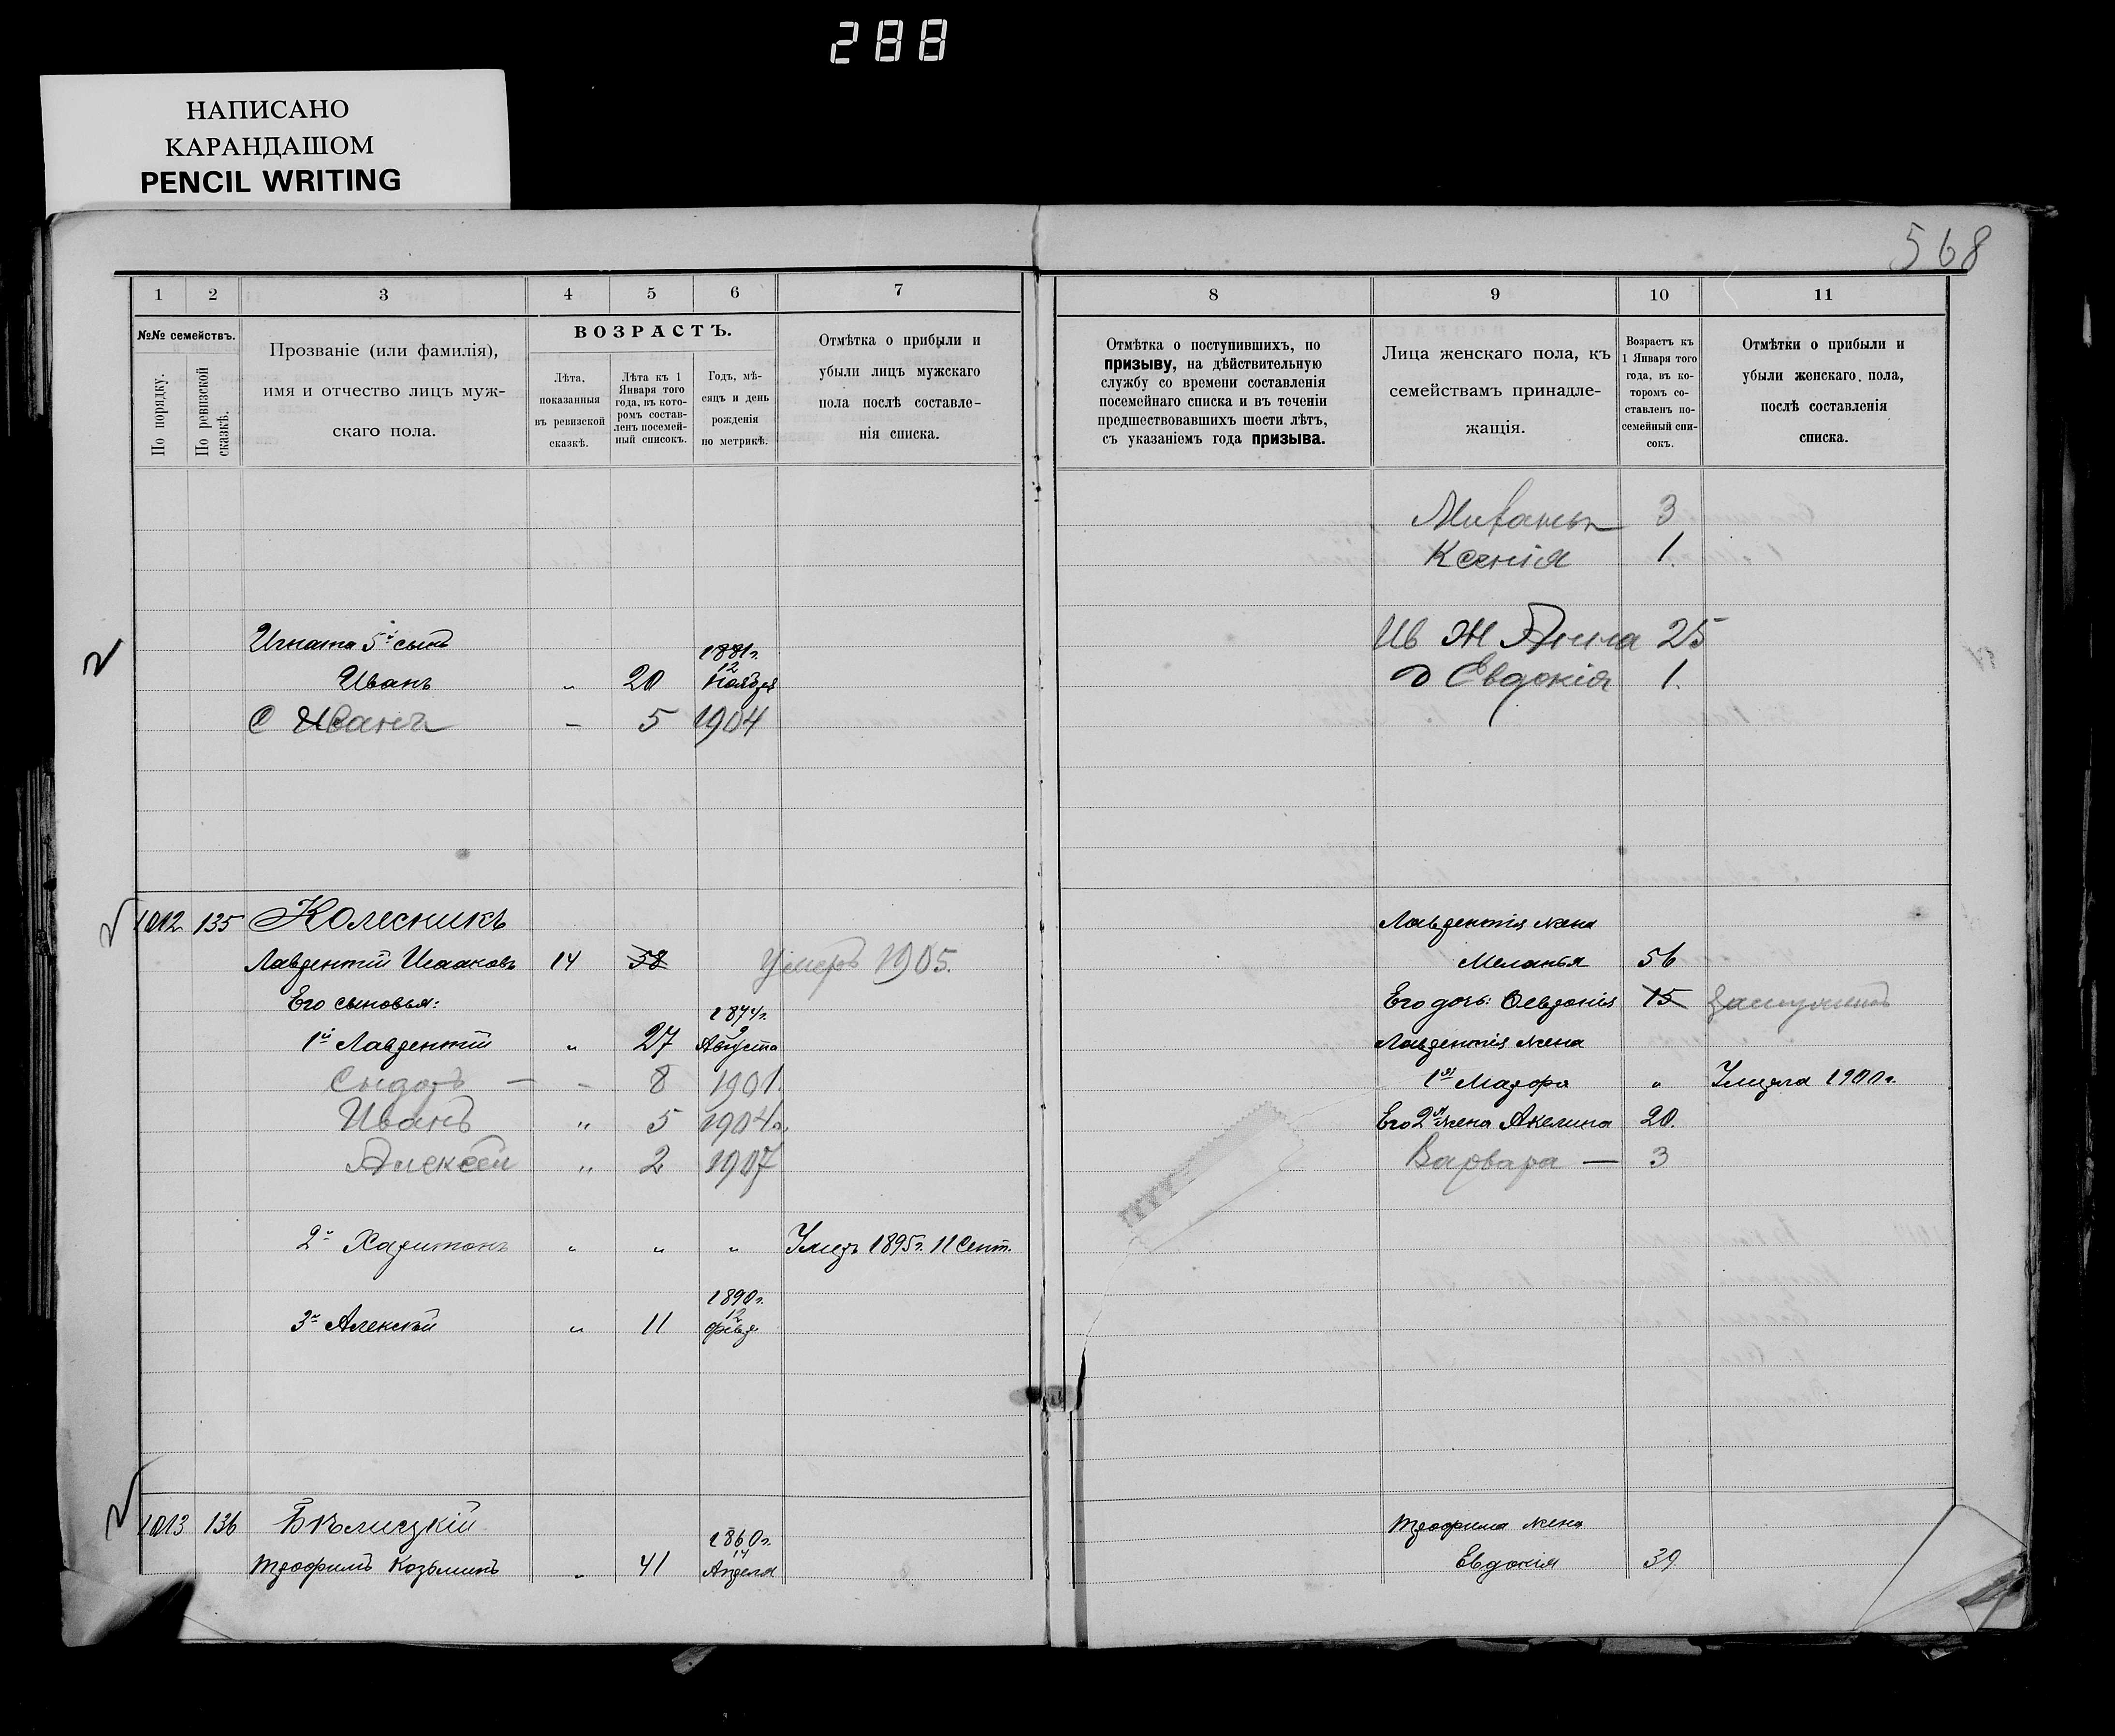 288
НАПИСАНО
КАРАНДАШОМ
PENCIL WRITING
568
1 2 3 4 5 6 7 8 9 10 11
№№ семействъ.
По порядку.
По ревизской сказкѣ.
Прозваніе (или фамилія),
имя и отчество лицъ муж-
скаго пола.
ВОЗРАСТЪ.
Лѣта,
показанныя
въ ревизской
сказкѣ.
Лѣта къ 1
Января того
года, въ кото-
ромъ состав-
ленъ посемей-
ный списокъ.
Годъ, мѣ-
сяцъ и день
рожденія
по метрикѣ.
Отмѣтка о прибыли и
убыли лицъ мужскаго
пола послѣ составле-
нія списка.
Отмѣтка о поступившихъ, по
призыву, на дѣйствительную
службу со времени составленія
посемейнаго списка и въ теченіи
предшествовавшихъ шести лѣтъ,
съ указаніемъ года призыва.
Лица женскаго пола, къ
семействамъ принадле-
жащія.
Возрастъ къ
1 Января того
года, въ ко-
торомъ со-
ставленъ по-
семейный спи-
сокъ.
Отмѣтки о прибыли и
убыли женскаго пола,
послѣ составленія
списка.
3
Ксенія 1.
Игната 5й сынъ
Ив Ж Анна 25
1881г.
12
Иванъ „ 20 Ноября
д Евдокія 1.
С Иванъ – 5 1904
1012 135 Колесникъ
Лаврентія жена
Лаврентій Исааковъ 14 58 Умеръ 1905.
Меланья 56
Его сыновья:
Его дочь: Оевдокія 15 Замужемъ
1874г.
9
1й Лаврентій „ 27 Августа
Лаврентія жена
Сидоръ – 8 1901.
1я Мавра „ Умерла 1900г.
Иванъ „ 5 1904г.
Его 2я жена Акелина 20.
Алексѣй „ 2 1907
Варвара — 3
2й Харитонъ „ „ „ Умеръ 1895г. 11 Сент.
1890г.
12
3й Алексѣй „ 11 февр
1013 136 Бѣлицкій
Трофима жена
1860г.
14
Трофимъ Козьминъ „ 41 Апреля
Евдокія 39